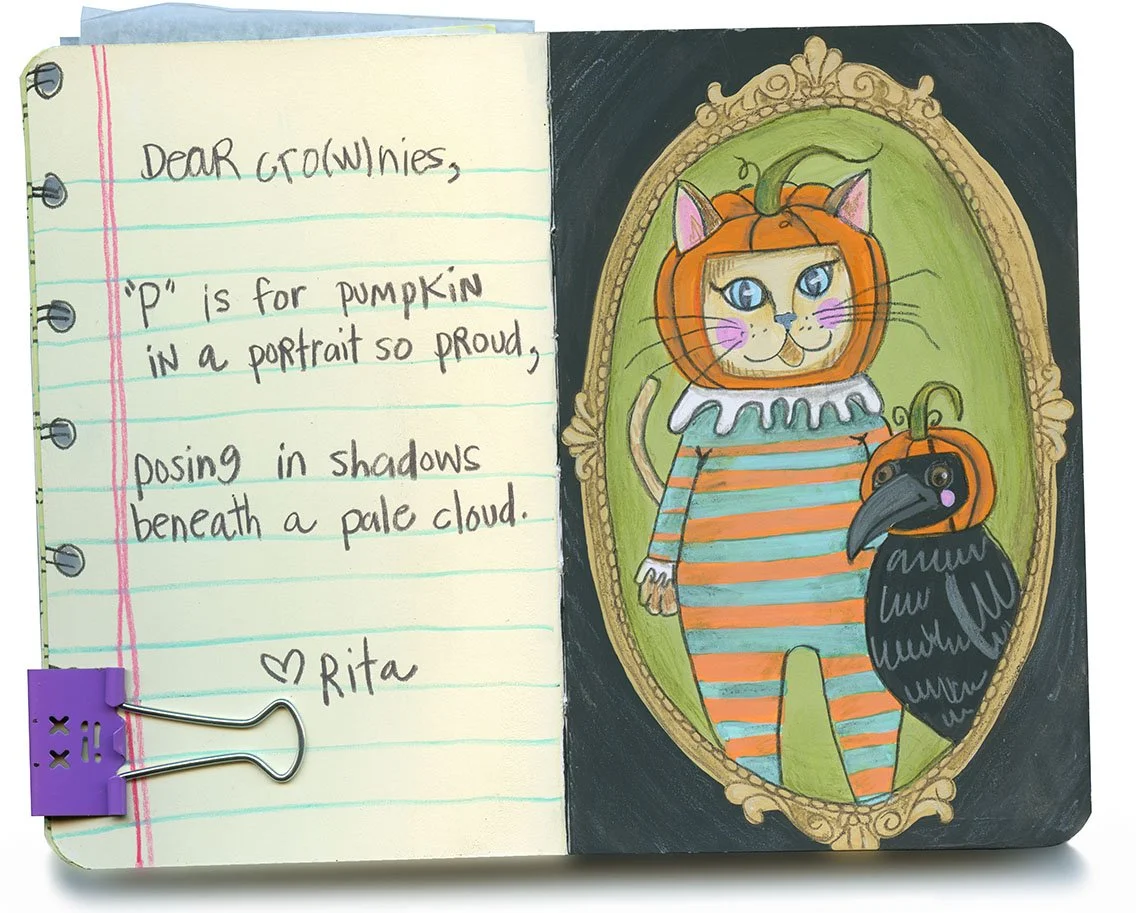 Dear cro(w)nies,
"P" is for pumpkin
in a portrait so proud,
posing in shadows
beneath a pale cloud.
♡ Rita